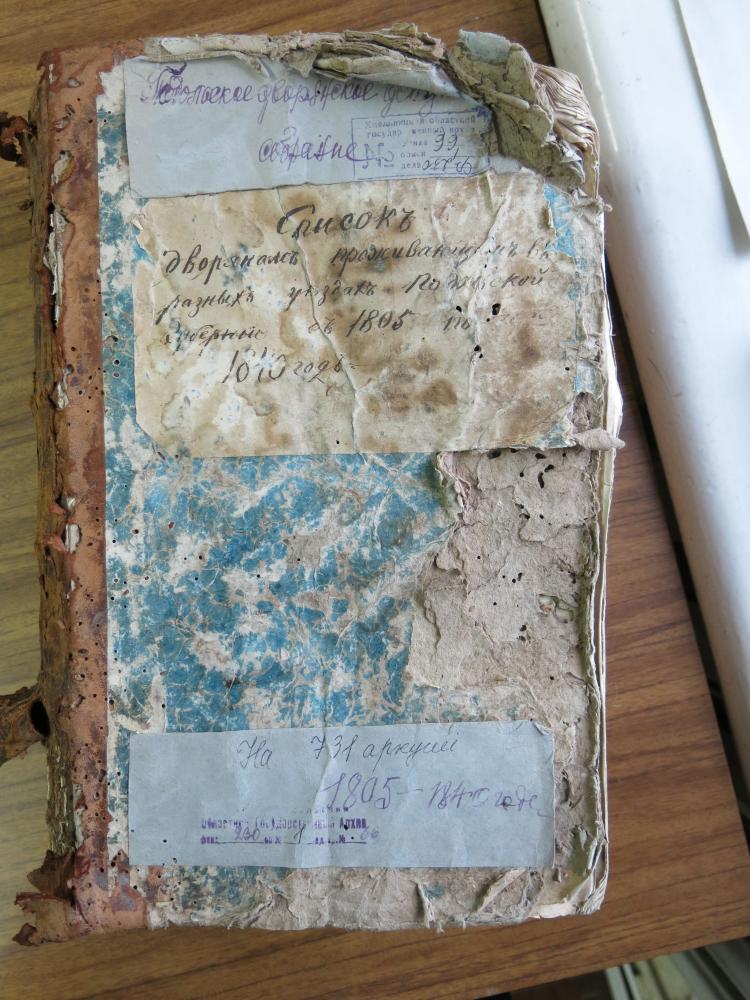 Подольское дворянское депу
собрание
Хмельницкий областной
государственный архив
№
описи
дело 66
Списокъ
дворянамъ проживающимъ въ
разныхъ уездахъ Подольской
Губернии съ 1805 по
1840 годъ
На 731 аркуші
1805-1840 годы
Областной Государственный Архив
фонд 230 оп № 1 ед. хр. № 66